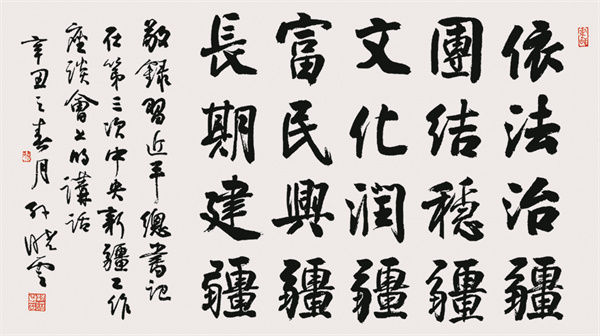 依法治疆
團結穩疆
文化潤疆
富民興疆
長期建疆
敬錄習近平總書記
在第三次中央新疆工作
座談會上的講話
辛丑之春月孫曉雲